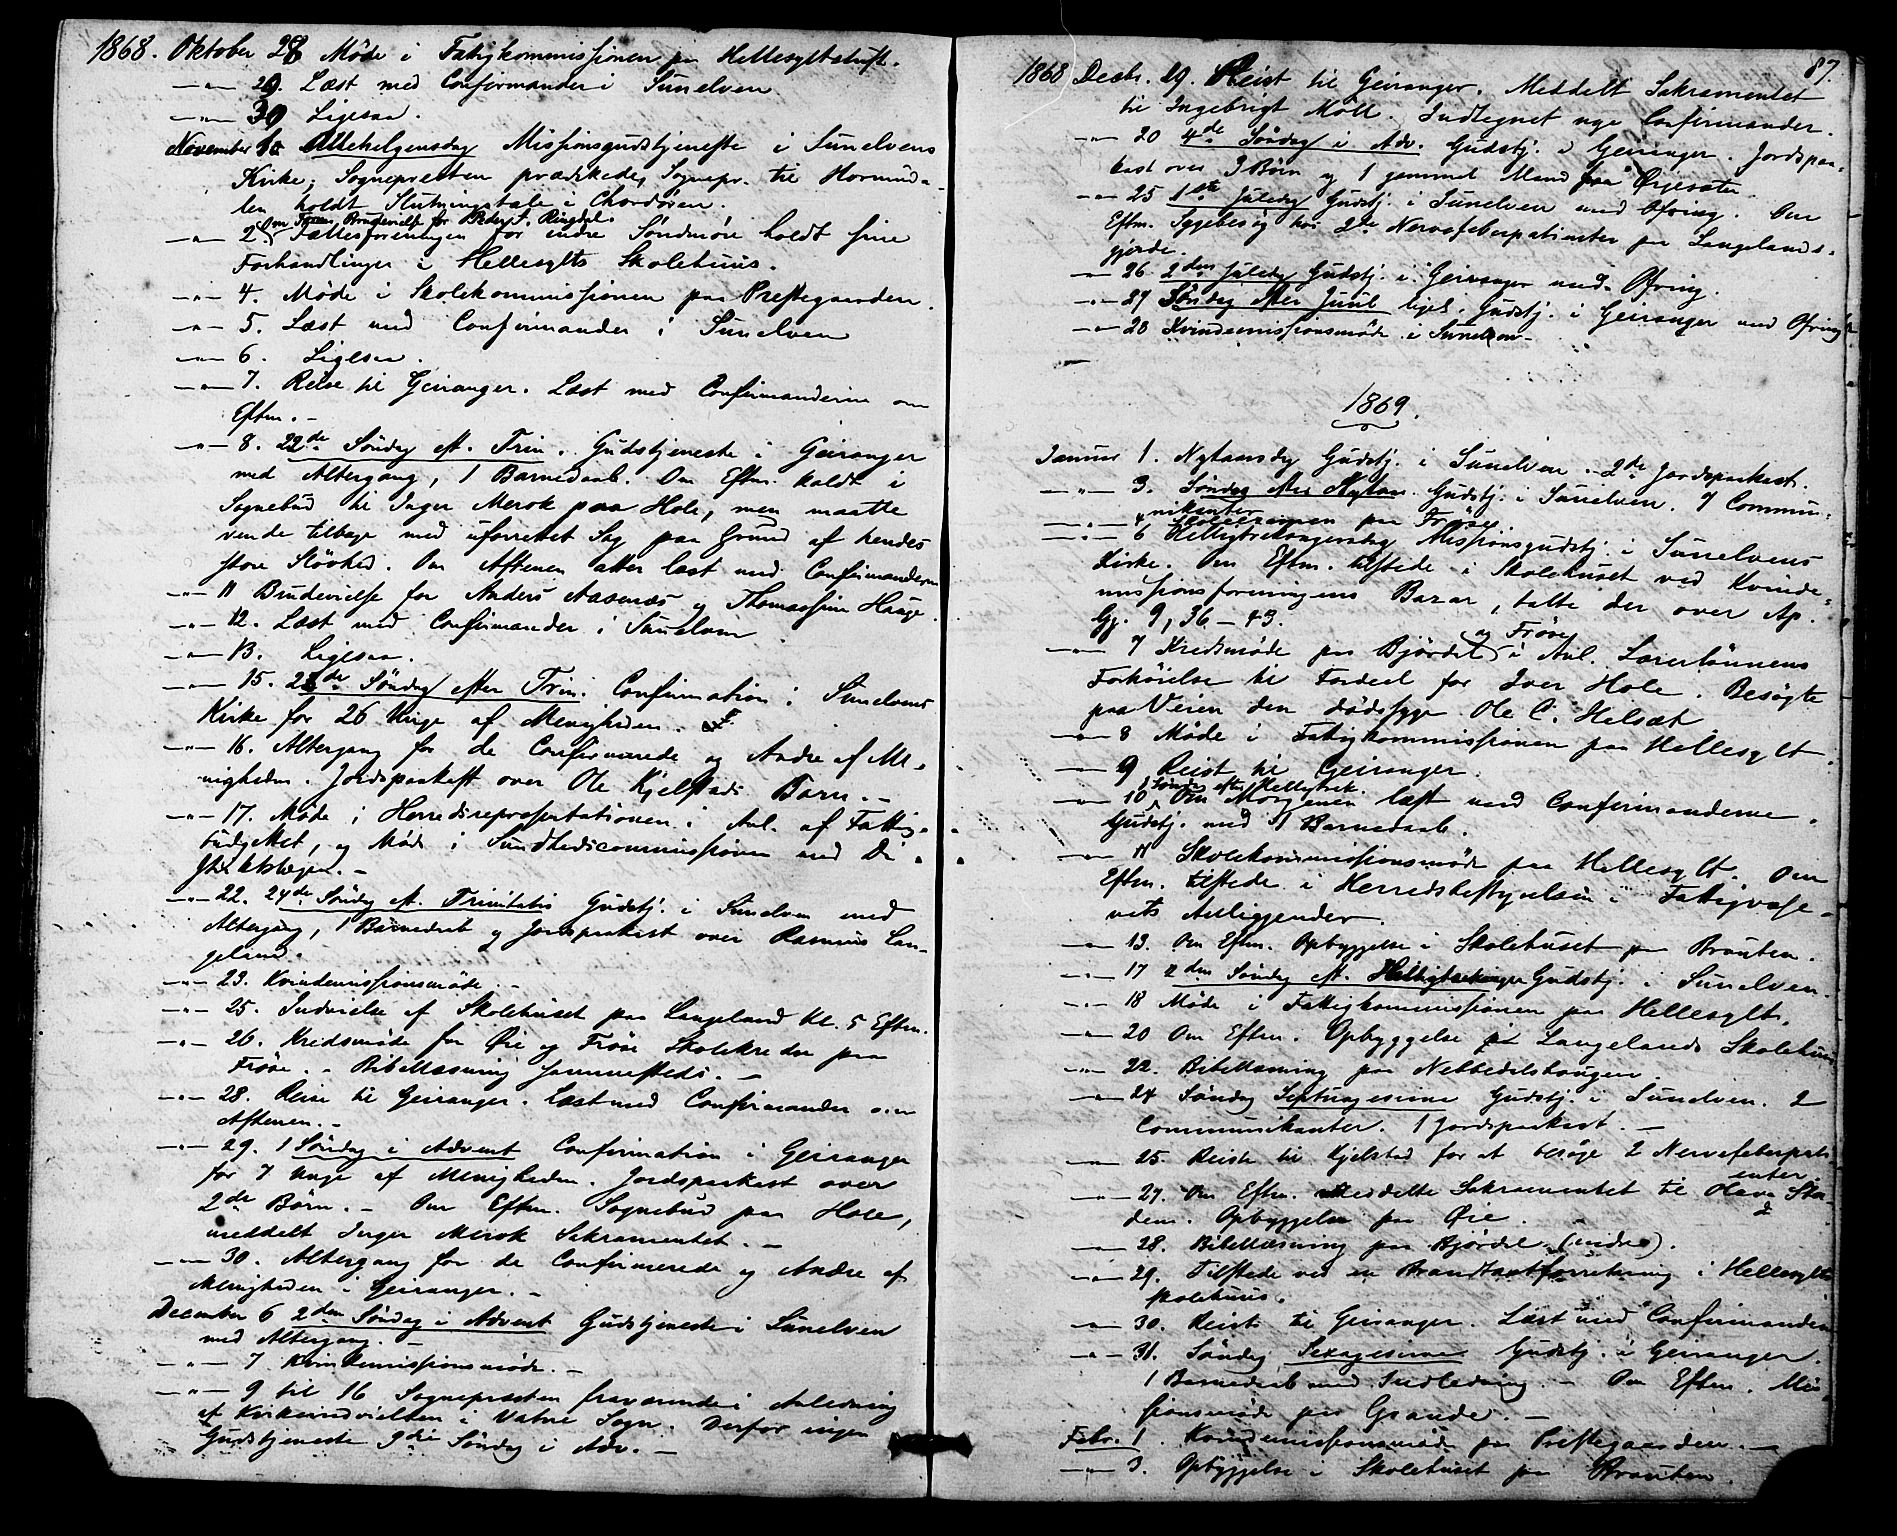 1868. Oktober 28 Möde i Fatigkommissionen paa Hellesyltstuft.
—"— 29. Læst med Confirmander i Sunelven
—"— 30 Ligesaa.
November 1st Allehelgensdag Missionsgudstjeneste i Sunelvens
Kirke; Sognepresten prædikede, Sognepr. til Hornind-
len holdt Slutningstale i Chordören.
Om Brudevielse for Peder Ringdal.
—"— 2. Fællesforeningen for indre Söndmöre holdt sine
Forhandlinger i Hellesylts Skolehuus.
—"— 4. Möde i Skolekommissionen paa Prestegaarden.
—"— 5. Læst med Confirmander i Sunelven
—"— 6. Ligesaa.
—"— 7. Reise til Geiranger. Læst med Confirmanderne om
Eftm. -
—"— 8. 22de Söndag eft. Trin. Gudstjeneste i Geiranger
med Altergang, 1 Barnedaab. Om Eftm. kaldt i
Sognebud til Inger Merok paa Hole, men maatte
vende tilbage med uforrettet Sag paa Grund af hendes
store Slövhed. Om Aftenen atter læst med Confirmanderne
—"— 11 Brudevielse for Anders Aasenæs og Thomassine Hauge.
—"— 12. Læst med Confirmander i Sunelven
—"— 13. Ligesaa.
—"— 15. 23de Söndag efter Trin. Confirmation i Sunelvens
Kirke for 26 Unge af Menigheden.
—"— 16. Altergang for de Confirmerede og Andre af Me-
nigheden. Jordspaakast over Ole Kjelstads Barn. -
—"— 17. Möde i Herredsrepresentationen i Anl. af Fattig-
budjettet, og Möde i Sundhedscommissionen med Di-
striktslægen. -
—"— 22. 24de Söndag eft. Trinitatis Gudstj. i Sunelven med
Altergang, 1 Barnedaab og Jordspaakast over Rasmus Lan-
geland.
—"— 23. Kvindemissionsmöde. -
—"— 25. Indvielse af Skolehuset paa Langeland Kl. 5 Eftm.
—"— 26. Kredsmöde for Öie og Fröse Skolekredse paa
Fröse. - Bibellæsning sammesteds. -
—"— 28. Reise til Geiranger. Læst med Confirmander om
Aftenen. -
—"— 29. 1 Söndag i Advent Confirmation i Geiranger
for 7 Unge af Menigheden. Jordspaakast over
2de Börn. - Om Eftm. Sognebud paa Hole,
meddelt Inger Merok Sakramentet. -
—"— 30. Altergang for de Confirmerede og Andre af
Menigheden i Geiranger. -
December 6 2den Söndag i Advent Gudstjeneste i Sunelven
med Altergang. -
—"— 7. Kvindemissionsmöde. -
—"— 9 til 16 Sognepresten fraværende i Anledning
af Kirkeindvielsen i Vatne Sogn. Derfor ingen
Gudstjeneste 3die Söndag i Adv. -
87.
1868 Decbr. 19. Reist til Geiranger. Meddelt Sakramentet
til Ingebrigt Möll. Indtegnet nye Confirmander.
—"— 20 4de Söndag i Adv. Gudstj. i Geiranger. Jordspaa-
kast over 3 Börn og 1 gammel Mand fra
—"— 25 1ste Juledag Gudstj. i Sunelven med Ofring. Om
Eftm. Sygebesög hos 2de Nervefeberpatienter paa Langelands-
gjerde.
—"— 26 2den Juledag Gudstj. i Geiranger med Ofring.
—"— 27 Söndag efter Juul ligel. Gudstj. i Geiranger med Ofring
—"— 28 Kvindemissionsmöde i Sunelven -
1869.
Januar 1. Nytaarsdag Gudstj. i Sunelven. - 2de Jordspaakast.
—"— 3. Söndag efter Nytaar. Gudstj. i Sunelven. 7 Commu-
nikanter
—"— 4 Skoleexamen paa Fröse.
—"— 6 Helligtrekongersdag Missionsgudstj. i Sunelvens
Kirke. Om Eftm. tilstede i Skolehuset ved Kvinde-
missionsforeningens Bazar, talte der over Ap.
Gj. 9, 36-43.
—"— 7 Kredsmöde paa Björdal og Fröse i Anl. Lærerlönnens
Forhöielse til Fordeel for Iver Hole. Besögte
paa Veien den dödssyge Ole C. Helsæt
—"— 8 Möde i Fatigkommissionen paa Hellesylt.
—"— 9 Reist til Geiranger.
—"— 10, 1 Söndag efter Helligtrek. Om Morgenen læst med Confirmanderne.
Gudstj. med 1 Barnedaab.
—"— 11 Skolekommissionsmöde paa Hellesylt. Om
Eftm. tilstede i Herredsbestyrelsen i Fattigvæse-
nets Anliggender.
—"— 13. Om Eftm. Opbyggelse i Skolehuset paa Brauten.
—"— 17 2den Söndag eft. Helligtrekonger Gudstj. i Sunelven.
—"— 18 Möde i Fattigkommissionen paa Hellesylt.
—"— 20 Om Eftm. Opbyggelse paa Langelands Skolehuus
—"— 22. Bibellæsning paa Nebbedalshaugen.
—"— 24 Söndag Septuagesima Gudstj. i Sunelven. 2
Communikanter. 1 Jordspaakast. -
—"— 25. Reiste til Kjelstad for at besöge 2 Nervefeberpati-
enter.
—"— 27. Om Eftm. meddelte Sakramentet til Olava Sta-
dem. Opbyggelse paa Öie. -
—"— 28. Bibellæsning paa Björdal (indre).
—"— 29. Tilstede ved en Brandtaxtforretning i Hellesylts
skolehuus.
—"— 30. Reiste til Geiranger. Læst med Confirmanderne
—"— 31. Söndag Sexagesima Gudstj. i Geiranger.
1 Barnedaab med Indledning. - Om Eftm. Mis-
sionsmöde paa Grande. -
Febr. 1. Kvindemissionsmöde paa Prestegaarden. -
—"— 3. Opbyggelse i Skolehuset paa Brauten.